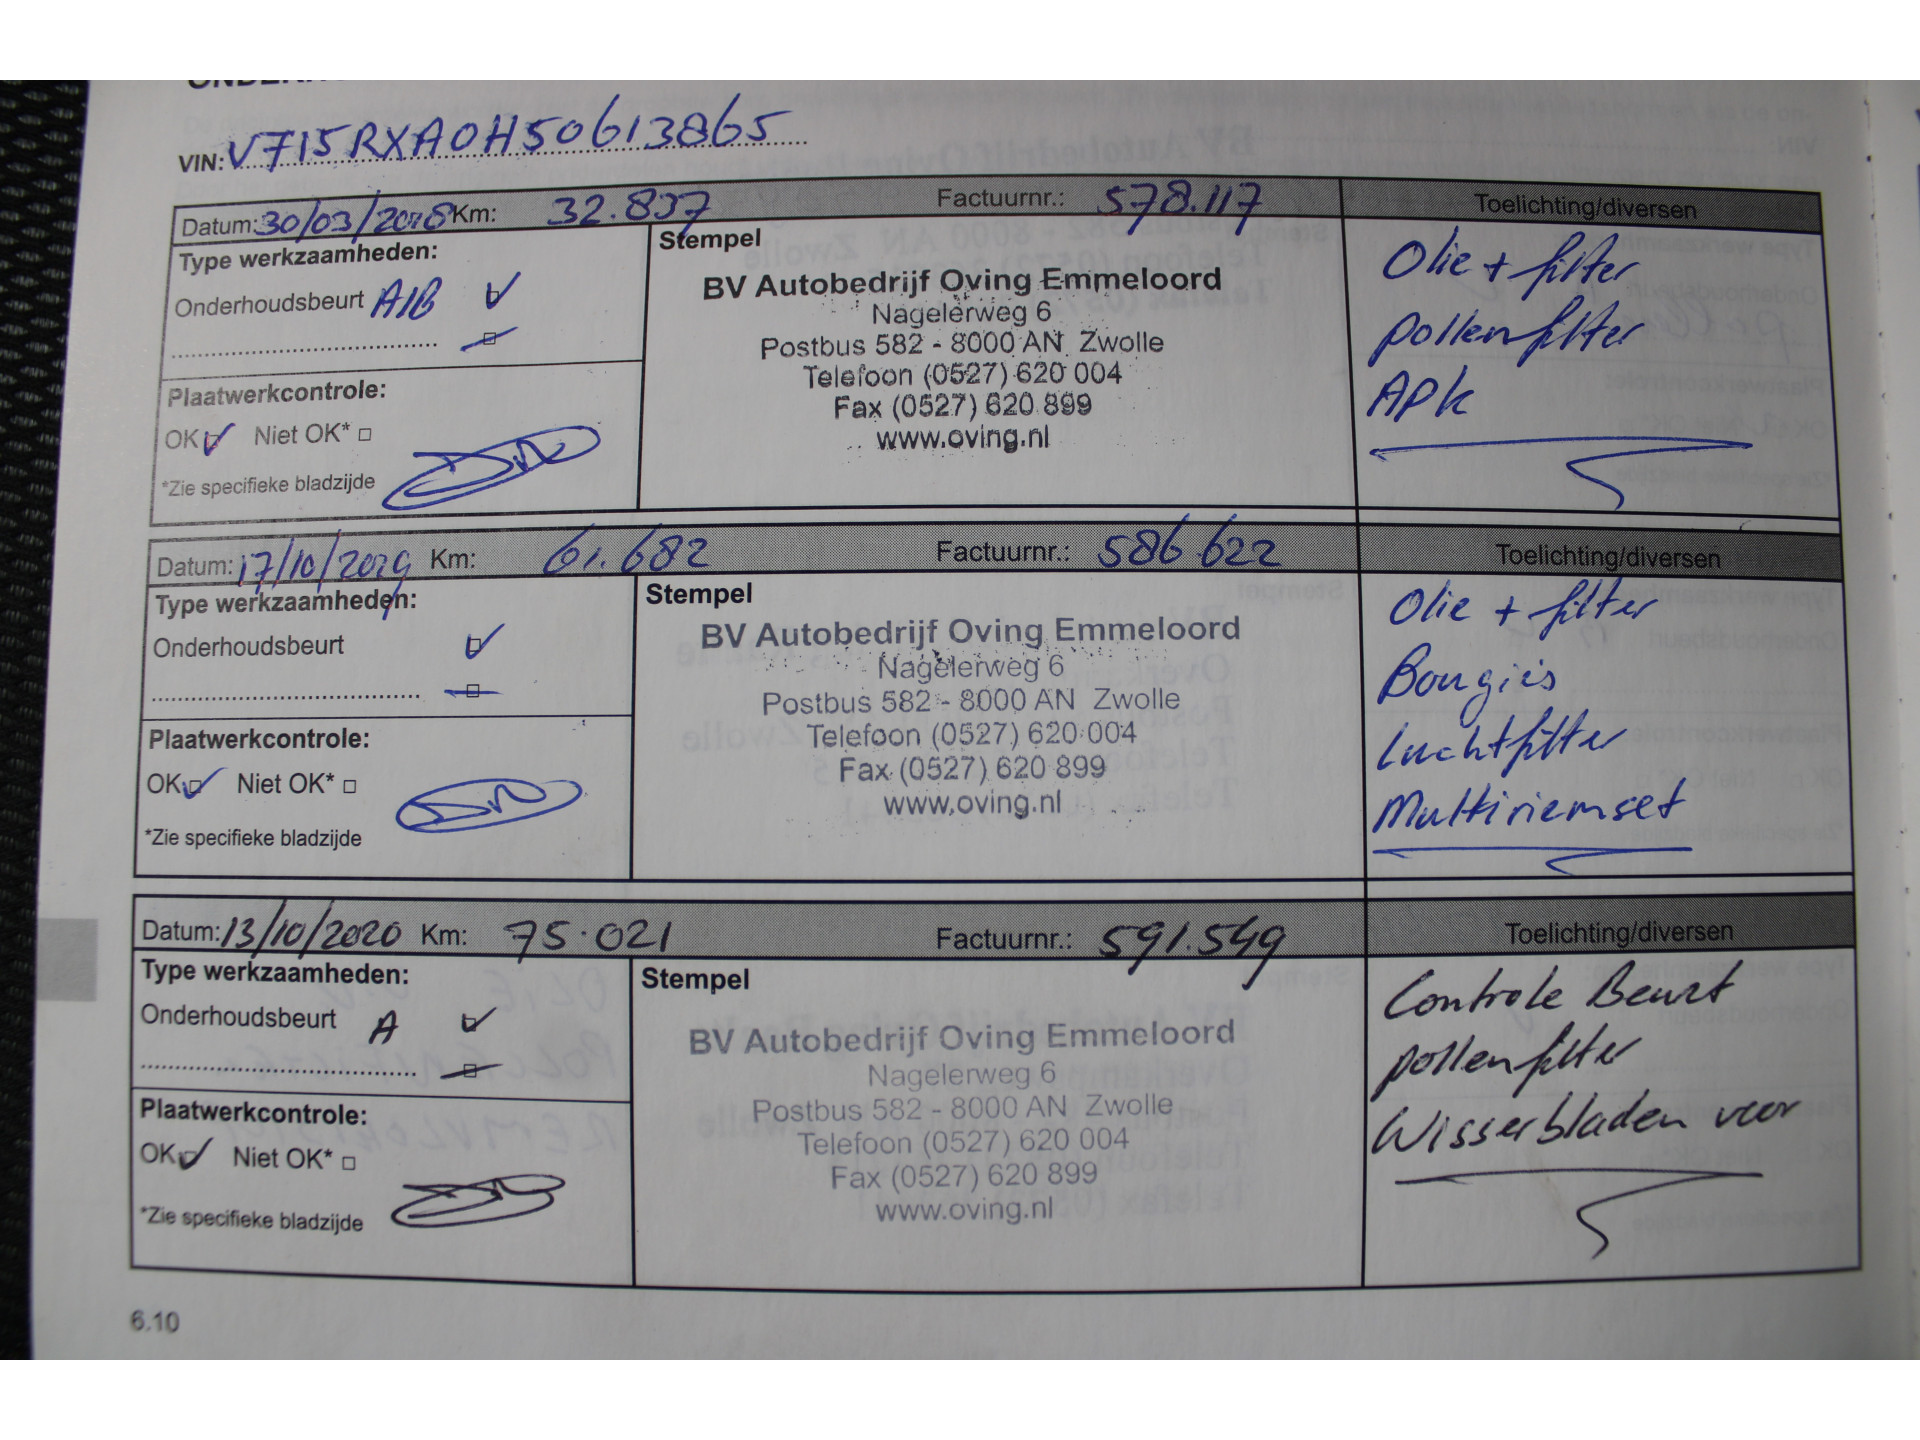 VIN: V715RXA0H50613865
Datum: 30/03/2018 Km: 32.837 Factuurnr.: 578.117 Toelichting/diversen
Type werkzaamheden:
Onderhoudsbeurt A1B
Plaatwerkcontrole:
OK Niet OK*
*Zie specifieke bladzijde
Stempel
BV Autobedrijf Oving Emmeloord
Nagelerweg 6
Postbus 582 - 8000 AN Zwolle
Telefoon (0527) 620 004
Fax (0527) 620 899
www.oving.nl
Olie + filter
pollenfilter
APK
Datum: 17/10/2019 Km: 61.682 Factuurnr.: 586 622 Toelichting/diversen
Type werkzaamheden:
Onderhoudsbeurt
Plaatwerkcontrole:
OK Niet OK*
*Zie specifieke bladzijde
Stempel
BV Autobedrijf Oving Emmeloord
Nagelerweg 6
Postbus 582 - 8000 AN Zwolle
Telefoon (0527) 620 004
Fax (0527) 620 899
www.oving.nl
Olie + filter
Bougies
Luchtfilter
Multiriemset
Datum: 13/10/2020 Km: 75.021 Factuurnr.: 591.549 Toelichting/diversen
Type werkzaamheden:
Onderhoudsbeurt A
Plaatwerkcontrole:
OK Niet OK*
*Zie specifieke bladzijde
Stempel
BV Autobedrijf Oving Emmeloord
Nagelerweg 6
Postbus 582 - 8000 AN Zwolle
Telefoon (0527) 620 004
Fax (0527) 620 899
www.oving.nl
Controle Beurt
pollenfilter
Wisserbladen voor
6.10